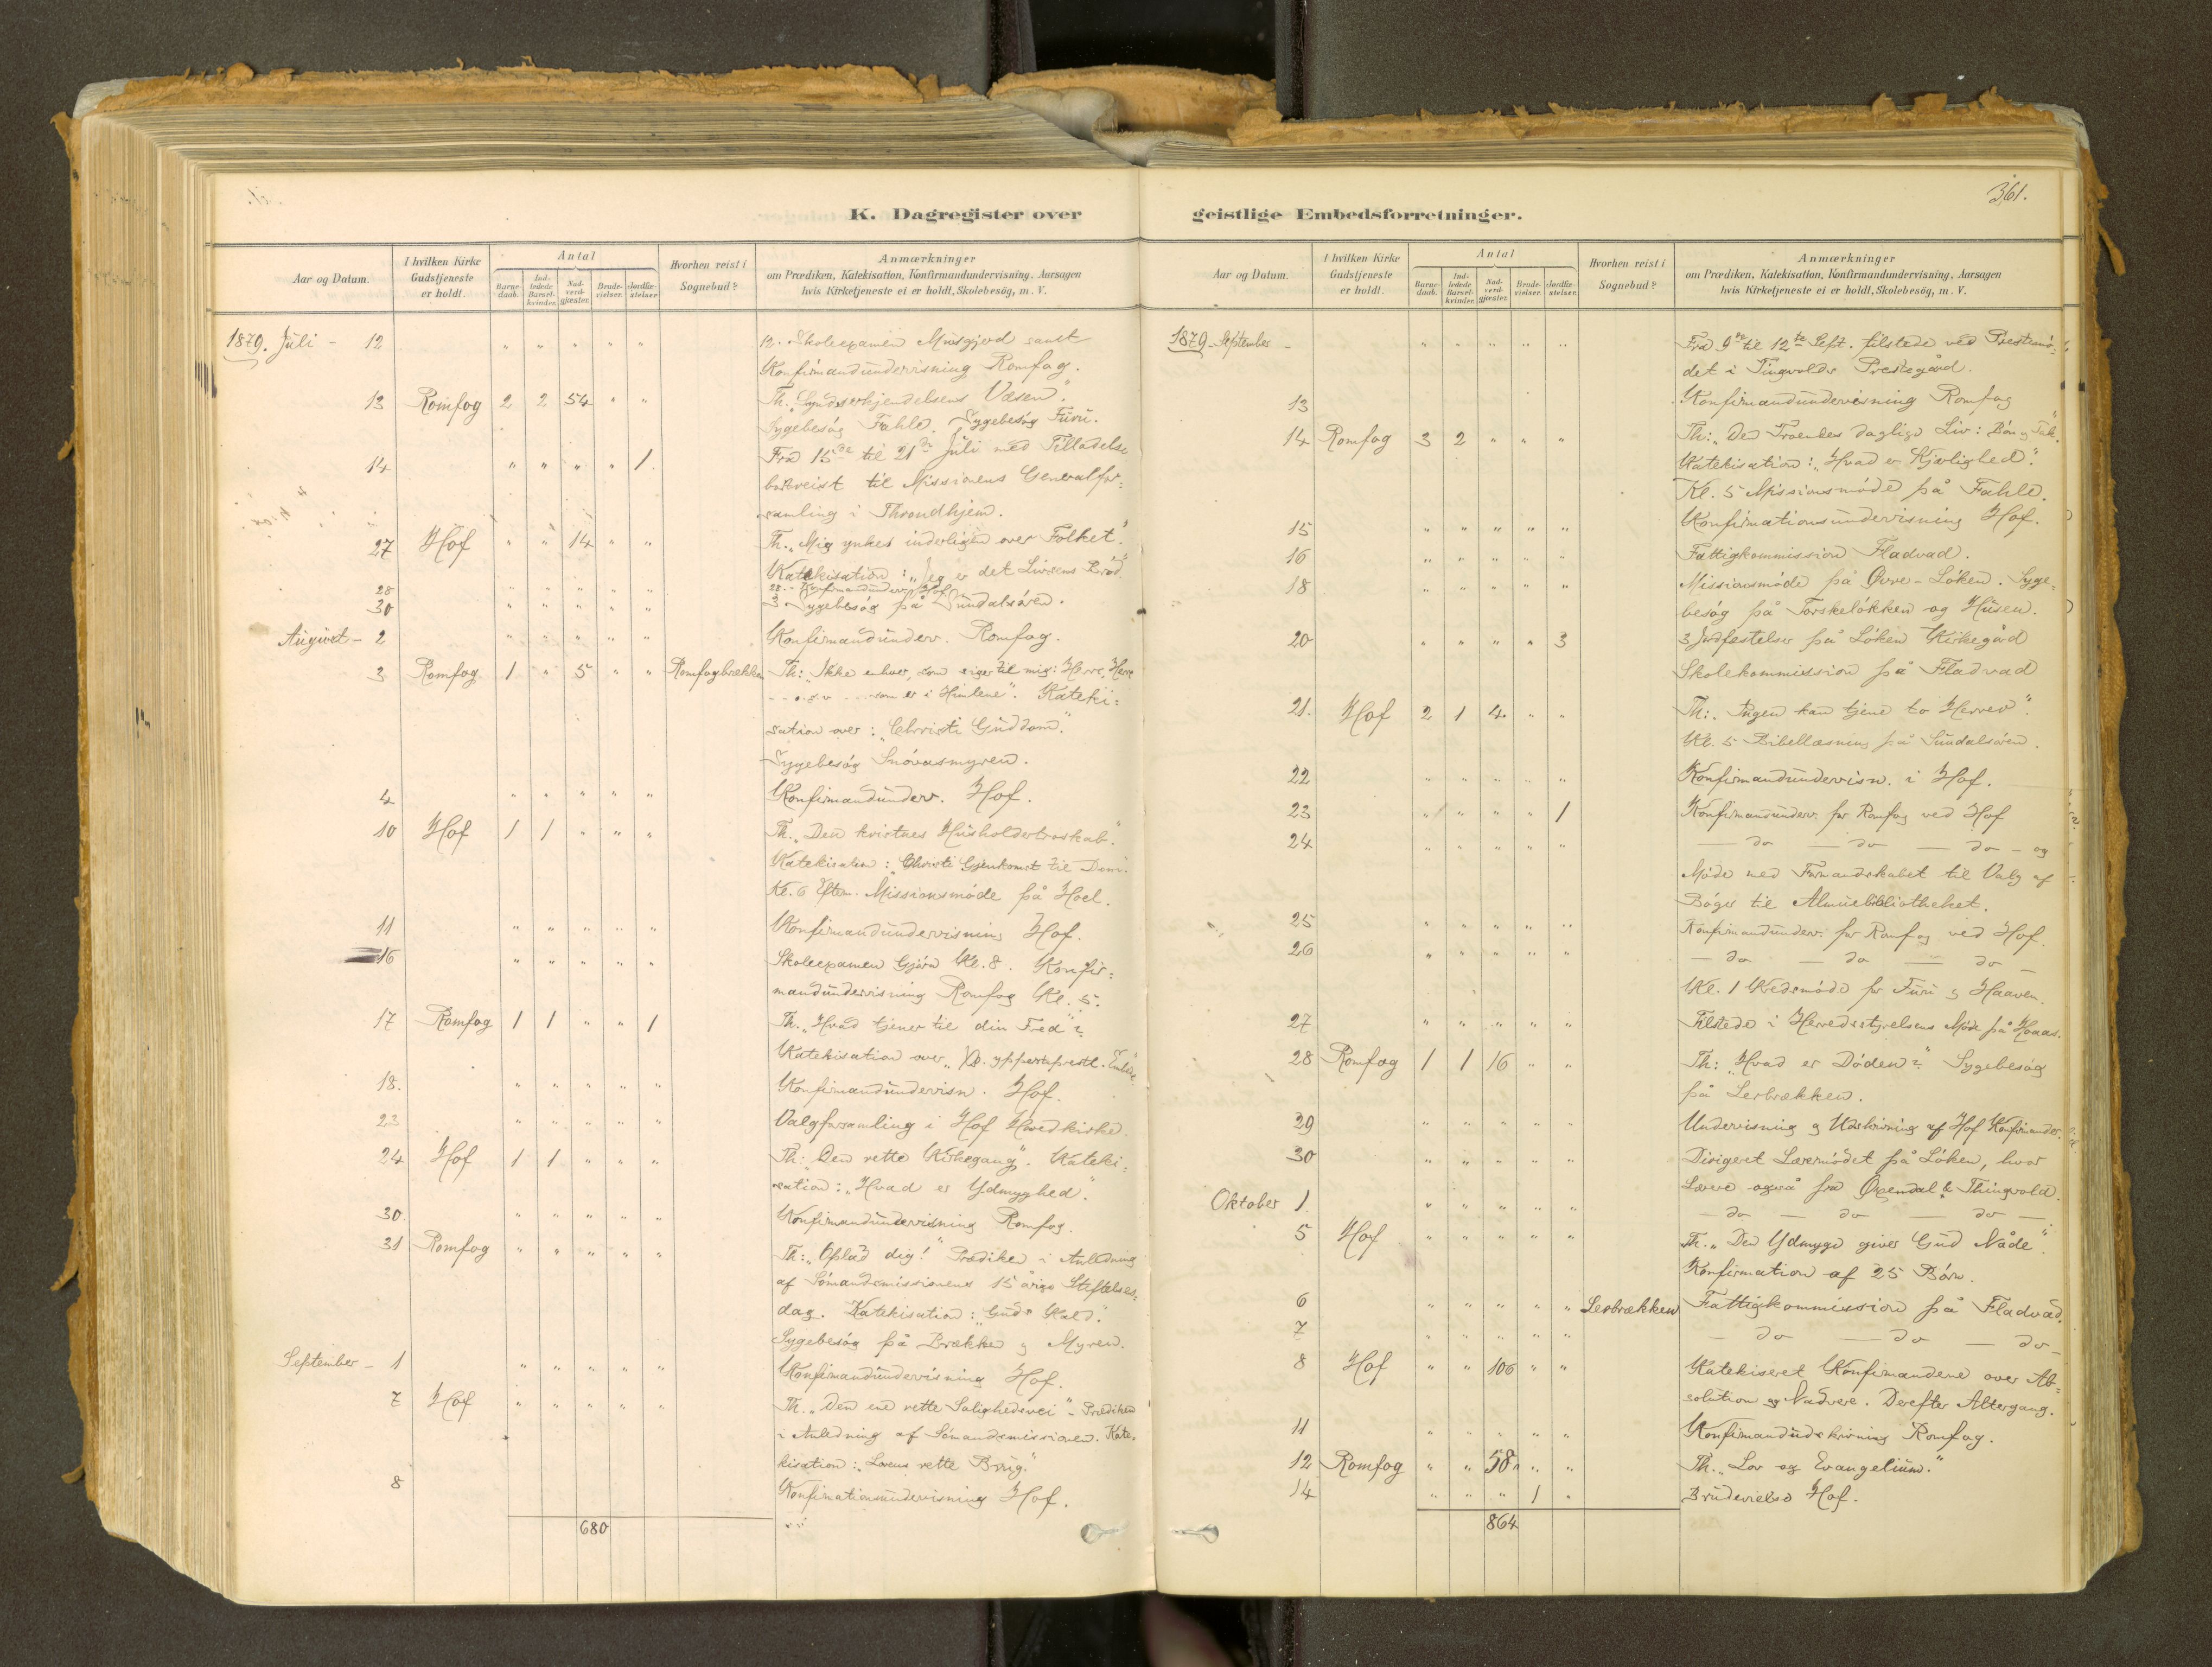 K. Dagregister over
Aar og Datum.
I hvilken Kirke Gudstjeneste er holdt.
Antal
Barnedaab.
Indledede Barselkvinder.
Nadverdgjæster.
Brudevielser.
Jordfæstelser.
Hvorhen reist i Sognebud?
Anmærkninger
om Prædiken, Katekisation, Konfirmandundervisning, Aarsagen
hvis Kirketjeneste ei er holdt, Skolebesög, m. V.
1879. Juli - 12 " " " " " 12. Skoleexamen Musgjerd samt
Konfirmandundervisning Romfog.
13 Romfog 2 2 54 " " Th. "Syndserkjendelsens Væsen".
Sygebesög Fahle. Sygebesög Furu.
14 " " " " 1 Fra 15de til 21de Juli med Tilladelse
bortreist til Missionens Generalfor-
samling i Throndhjem.
27 Hof " " 14 " " Th. "Mig ynkes inderligen over Folket".
Katekisation: "Jeg er det Livsens Bröd".
28 " " " " " 28. - Konfirmandunderv. Hof
30 " " " " " 3 Sygebesög på Sundalsören.
August - 2 " " " " " Konfirmandunderv. Romfog.
3 Romfog 1 " 5 " " Romfogbrækken Th: "Ikke enhver, som siger til mig: Herre, Herre
som er i Himlene". Kateki-
sation over: "Christi Guddom".
Sygebesög Snóvasmyren.
4 " " " " " Konfirmandunderv. Hof.
10 Hof 1 1 " " " Th. "Den kristnes Husholdertroskab".
Katekisation: "Christi Gjenkomst til Dom".
Kl. 6 Eftm. Missionsmöde på Hoel.
11 " " " " " Konfirmandundervisning Hof.
16 " " " " " Skoleexamen Gjöra Kl. 8. Konfir-
mandundervisning Romfog Kl. 5.
17 Romfog 1 1 " " 1 Th. "Hvad tjener til din Fred"?
Katekisation over "Xti ypperstepræstl. Embede".
18. " " " " " Konfirmandundervisn. Hof.
23 " " " " " Valgforsamling i Hof Hovedkirke.
24 Hof 1 1 " " " Th: "Den rette Kirkegang". Kateki-
sation: "Hvad er Ydmyghed".
30. " " " " " Konfirmandundervisning Romfog.
31 Romfog " " " " " Th: "Oplad dig!" Prædiken i Anledning
af Sömandsmissionens 15 årige Stiftelses-
dag. Katekisation: "Guds Kald".
Sygebesög på Brækken og Myren.
September - 1 " " " " " Konfirmandundervisning Hof.
7 Hof " " " " " Th. "Den ene rette Salighedsvei" - Prædiken
i Anledning af Sömandsmissionen. Kate-
kisation: "Lovens rette Brug".
8 Konfirmationsundervisning Hof.
680
361.
geistlige Embedsforretninger.
Aar og Datum.
I hvilken Kirke Gudstjeneste er holdt.
Antal
Barnedaab.
Indledede Barselkvinder.
Nadverdgjæster.
Brudevielser.
Jordfæstelser.
Hvorhen reist i Sognebud?
Anmærkninger
om Prædiken, Katekisation, Konfirmandundervisning, Aarsagen
hvis Kirketjeneste ei er holdt, Skolebesög, m. V.
1879 - September - " " " " " Fra 9de til 12te Sept. tilstede ved Prestemö-
det i Tingvolds Prestegård.
13 Konfirmandundervisning Romfog
14 Romfog 3 2 " " " Th: "Den Troendes daglige Liv: Bön og Tak".
Katekisation: "Hvad er Kjærlighed".
Kl. 5 Missionsmöde på Fahle.
15 " " " " " Konfirmationsundervisning Hof.
16 " " " " " Fattigkommission Fladvad.
18 " " " " " Missionsmöde på Övre-Löken. Syge-
besög på Torskelökken og Husen.
20 " " " " 3 3 Jordfæstelser på Löken Kirkegård
Skolekommission på Fladvad
21. Hof 2 1 4 " " Th: "Ingen kan tjene to Herrer".
Kl. 5 Bibellæsning på Sundalsören.
22 " " " " " Konfirmandundervisn. i Hof.
23 " " " " 1 Konfirmandunderv. for Romfog ved Hof
24 " " " " " — do — do — do — og
Möde med Formandskabet til Valg af
Böger til Almuebibliotheket.
25 " " " " " Konfirmandunderv. for Romfog ved Hof.
26 " " " " " — do — do — do —
Kl. 1 Kredsmöde for Furu og Haaven.
27 " " " " " Tilstede i Herredsstyrelsens Möde på Hoaas.
28 Romfog 1 1 16 " " Th: "Hvad er Döden"? Sygebesög
på Lesbrækken.
29 " " " " " Undervisning og Udskrivning af Hof Konfirmander.
30 " " " " " Dirigeret Læremödet på Löken, hvor
Lærere også fra Öxendal & Thingvold.
Oktober 1 " " " " " — do — do — do —
5 Hof " " " " " Th. "Den Ydmyge giver Gud Nåde".
Konfirmation af 25 Börn.
6 " " " " " Lesbrækken Fattigkommission på Fladvad.
7 " " " " " — do — do — do —
8 Hof " " 106 " " Katekiseret Konfirmanderne over Ab-
solution og Nadvere. Derefter Altergang.
11 " " " " " Konfirmandudskrivning Romfog.
12 Romfog " " 58 " " Th. "Lov og Evangelium."
14 " " " 1 " Brudevielse Hof.
864